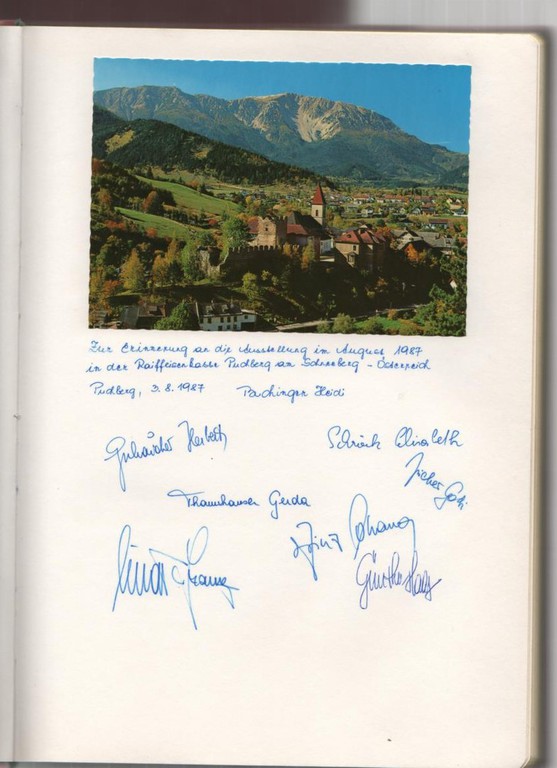 Zur Erinnerung an die Ausstellung im August 1987
in der Raiffeisenkasse Puchberg am Schneeberg - Österreich
Puchberg, 3.8.1987 Pachinger Heidi
Herbert Schrack Elisabeth
Thannhauser Gerda
Franz Johann
Günther Haas